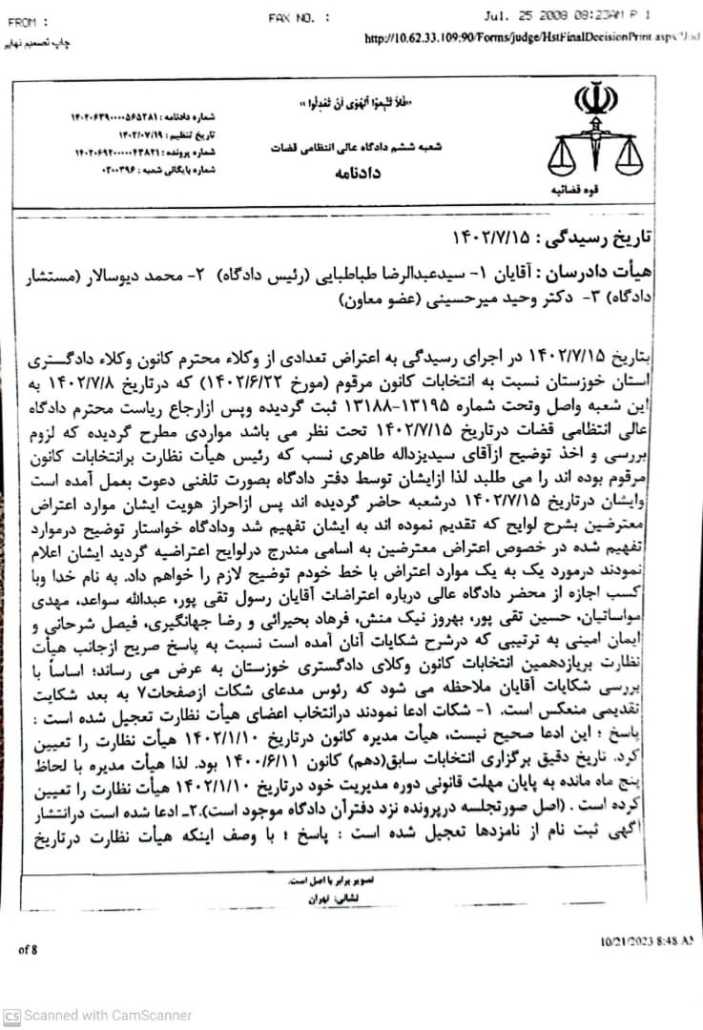 FROM :
FAX NO. :
Jul. 25 2008 08:23AM P 1
چاپ تصمیم نهایی
http://10.62.33.109:90/Forms/judge/HstFinalDecisionPrint.aspx?
«فَلاَ تَتَّبِعُوا الْهَوَى أَنْ تَعْدِلُوا»
شماره دادنامه : ۱۴۰۲۰۶۳۹۰۰۰۰۵۶۵۲۸۱
تاریخ تنظیم : ۱۴۰۲/۰۷/۱۹
شماره پرونده : ۱۴۰۲۰۶۹۲۰۰۰۰۰۴۳۸۲۱
شماره بایگانی شعبه : ۰۲۰۰۳۹۶
شعبه ششم دادگاه عالی انتظامی قضات
دادنامه
قوه قضائیه
تاریخ رسیدگی : ۱۴۰۲/۷/۱۵
هیأت دادرسان : آقایان ۱- سیدعبدالرضا طباطبایی (رئیس دادگاه) ۲- محمد دیوسالار (مستشار
دادگاه) ۳- دکتر وحید میرحسینی (عضو معاون)
بتاریخ ۱۴۰۲/۷/۱۵ در اجرای رسیدگی به اعتراض تعدادی از وکلاء محترم کانون وکلاء دادگستری
استان خوزستان نسبت به انتخابات کانون مرقوم (مورخ ۱۴۰۲/۶/۲۲) که درتاریخ ۱۴۰۲/۷/۸ به
این شعبه واصل وتحت شماره ۱۳۱۹۵-۱۳۱۸۸ ثبت گردیده وپس ازارجاع ریاست محترم دادگاه
عالی انتظامی قضات درتاریخ ۱۴۰۲/۷/۱۵ تحت نظر می باشد مواردی مطرح گردیده که لزوم
بررسی و اخذ توضیح ازآقای سیدیزداله طاهری نسب که رئیس هیأت نظارت برانتخابات کانون
مرقوم بوده اند را می طلبد لذا ازایشان توسط دفتر دادگاه بصورت تلفنی دعوت بعمل آمده است
وایشان درتاریخ ۱۴۰۲/۷/۱۵ درشعبه حاضر گردیده اند پس ازاحراز هویت ایشان موارد اعتراض
معترضین بشرح لوایح که تقدیم نموده اند به ایشان تفهیم شد ودادگاه خواستار توضیح درموارد
تفهیم شده در خصوص اعتراض معترضین به اسامی مندرج درلوایح اعتراضیه گردید ایشان اعلام
نمودند درمورد یک به یک موارد اعتراض با خط خودم توضیح لازم را خواهم داد. به نام خدا وبا
کسب اجازه از محضر دادگاه عالی درباره اعتراضات آقایان رسول تقی پور، عبدالله سواعد، مهدی
مواساتیان، حسین تقی پور، بهروز نیک منش، فرهاد بحیرائی و رضا جهانگیری، فیصل شرحانی و
ایمان امینی به ترتیبی که درشرح شکایات آنان آمده است نسبت به پاسخ صریح ازجانب هیأت
نظارت بریازدهمین انتخابات کانون وکلای دادگستری خوزستان به عرض می رساند؛ اساساً با
بررسی شکایات آقایان ملاحظه می شود که رئوس مدعای شکات ازصفحات۷ به بعد شکایت
تقدیمی منعکس است. ۱- شکات ادعا نمودند درانتخاب اعضای هیأت نظارت تعجیل شده است :
پاسخ ؛ این ادعا صحیح نیست، هیأت مدیره کانون درتاریخ ۱۴۰۲/۱/۱۰ هیأت نظارت را تعیین
کرد. تاریخ دقیق برگزاری انتخابات سابق(دهم) کانون ۱۴۰۰/۶/۱۱ بود. لذا هیأت مدیره با لحاظ
پنج ماه مانده به پایان مهلت قانونی دوره مدیریت خود درتاریخ ۱۴۰۲/۱/۱۰ هیأت نظارت را تعیین
کرده است . (اصل صورتجلسه درپرونده نزد دفترآن دادگاه موجود است).۲ـ ادعا شده است درانتشار
آگهی ثبت نام از نامزدها تعجیل شده است : پاسخ ؛ با وصف اینکه هیأت نظارت درتاریخ
تصویر برابر با اصل است.
نشانی: تهران
of 8
10/21/2023 8:48 AM
CS Scanned with CamScanner